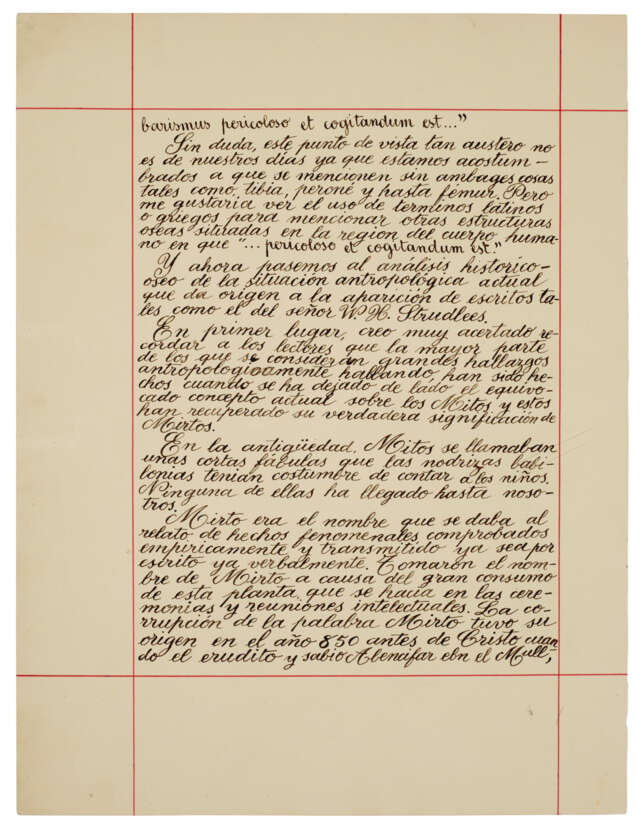 barismus pericoloso et cogitandum est..."
Sin duda, este punto de vista tan austero no
es de nuestros días ya que estamos acostum-
brados a que se mencionen sin ambages cosas
tales como, tibia, peroné y hasta fémur. Pero
me gustaría ver el uso de terminos latinos
o griegos para mencionar otras estructuras
oseas situadas en la region del cuerpo huma-
no en que "... pericoloso et cogitandum est."
Y ahora pasemos al análisis historico-
oseo de la situación antropológica actual
que da origen a la aparición de escritos ta-
les como el del señor W. H. Strudlees.
En primer lugar, creo muy acertado re-
cordar a los lectores que la mayor parte
de los que se consideran grandes hallazgos
antropologicamente hallando, han sido he-
chos cuando se ha dejado de lado el equivo-
cado concepto actual sobre los Mitos y estos
han recuperado su verdadera significación de
Mirtos.
En la antigüedad, Mitos se llamaban
unas cortas fábulas que las nodrizas babi-
lonias tenían costumbre de contar a los niños.
Ninguna de ellas ha llegado hasta noso-
tros.
Mirto era el nombre que se daba al
relato de hechos fenomenales comprobados
empiricamente y transmitido ya sea por
escrito ya verbalmente. Tomaron el nom-
bre de Mirto a causa del gran consumo
de esta planta, que se hacía en las cere-
monias y reuniones intelectuales. La co-
rrupción de la palabra Mirto tuvo su
origen en el año 850 antes de Cristo cuan-
do el erudito y sabio Abencifar ebn el Mull,